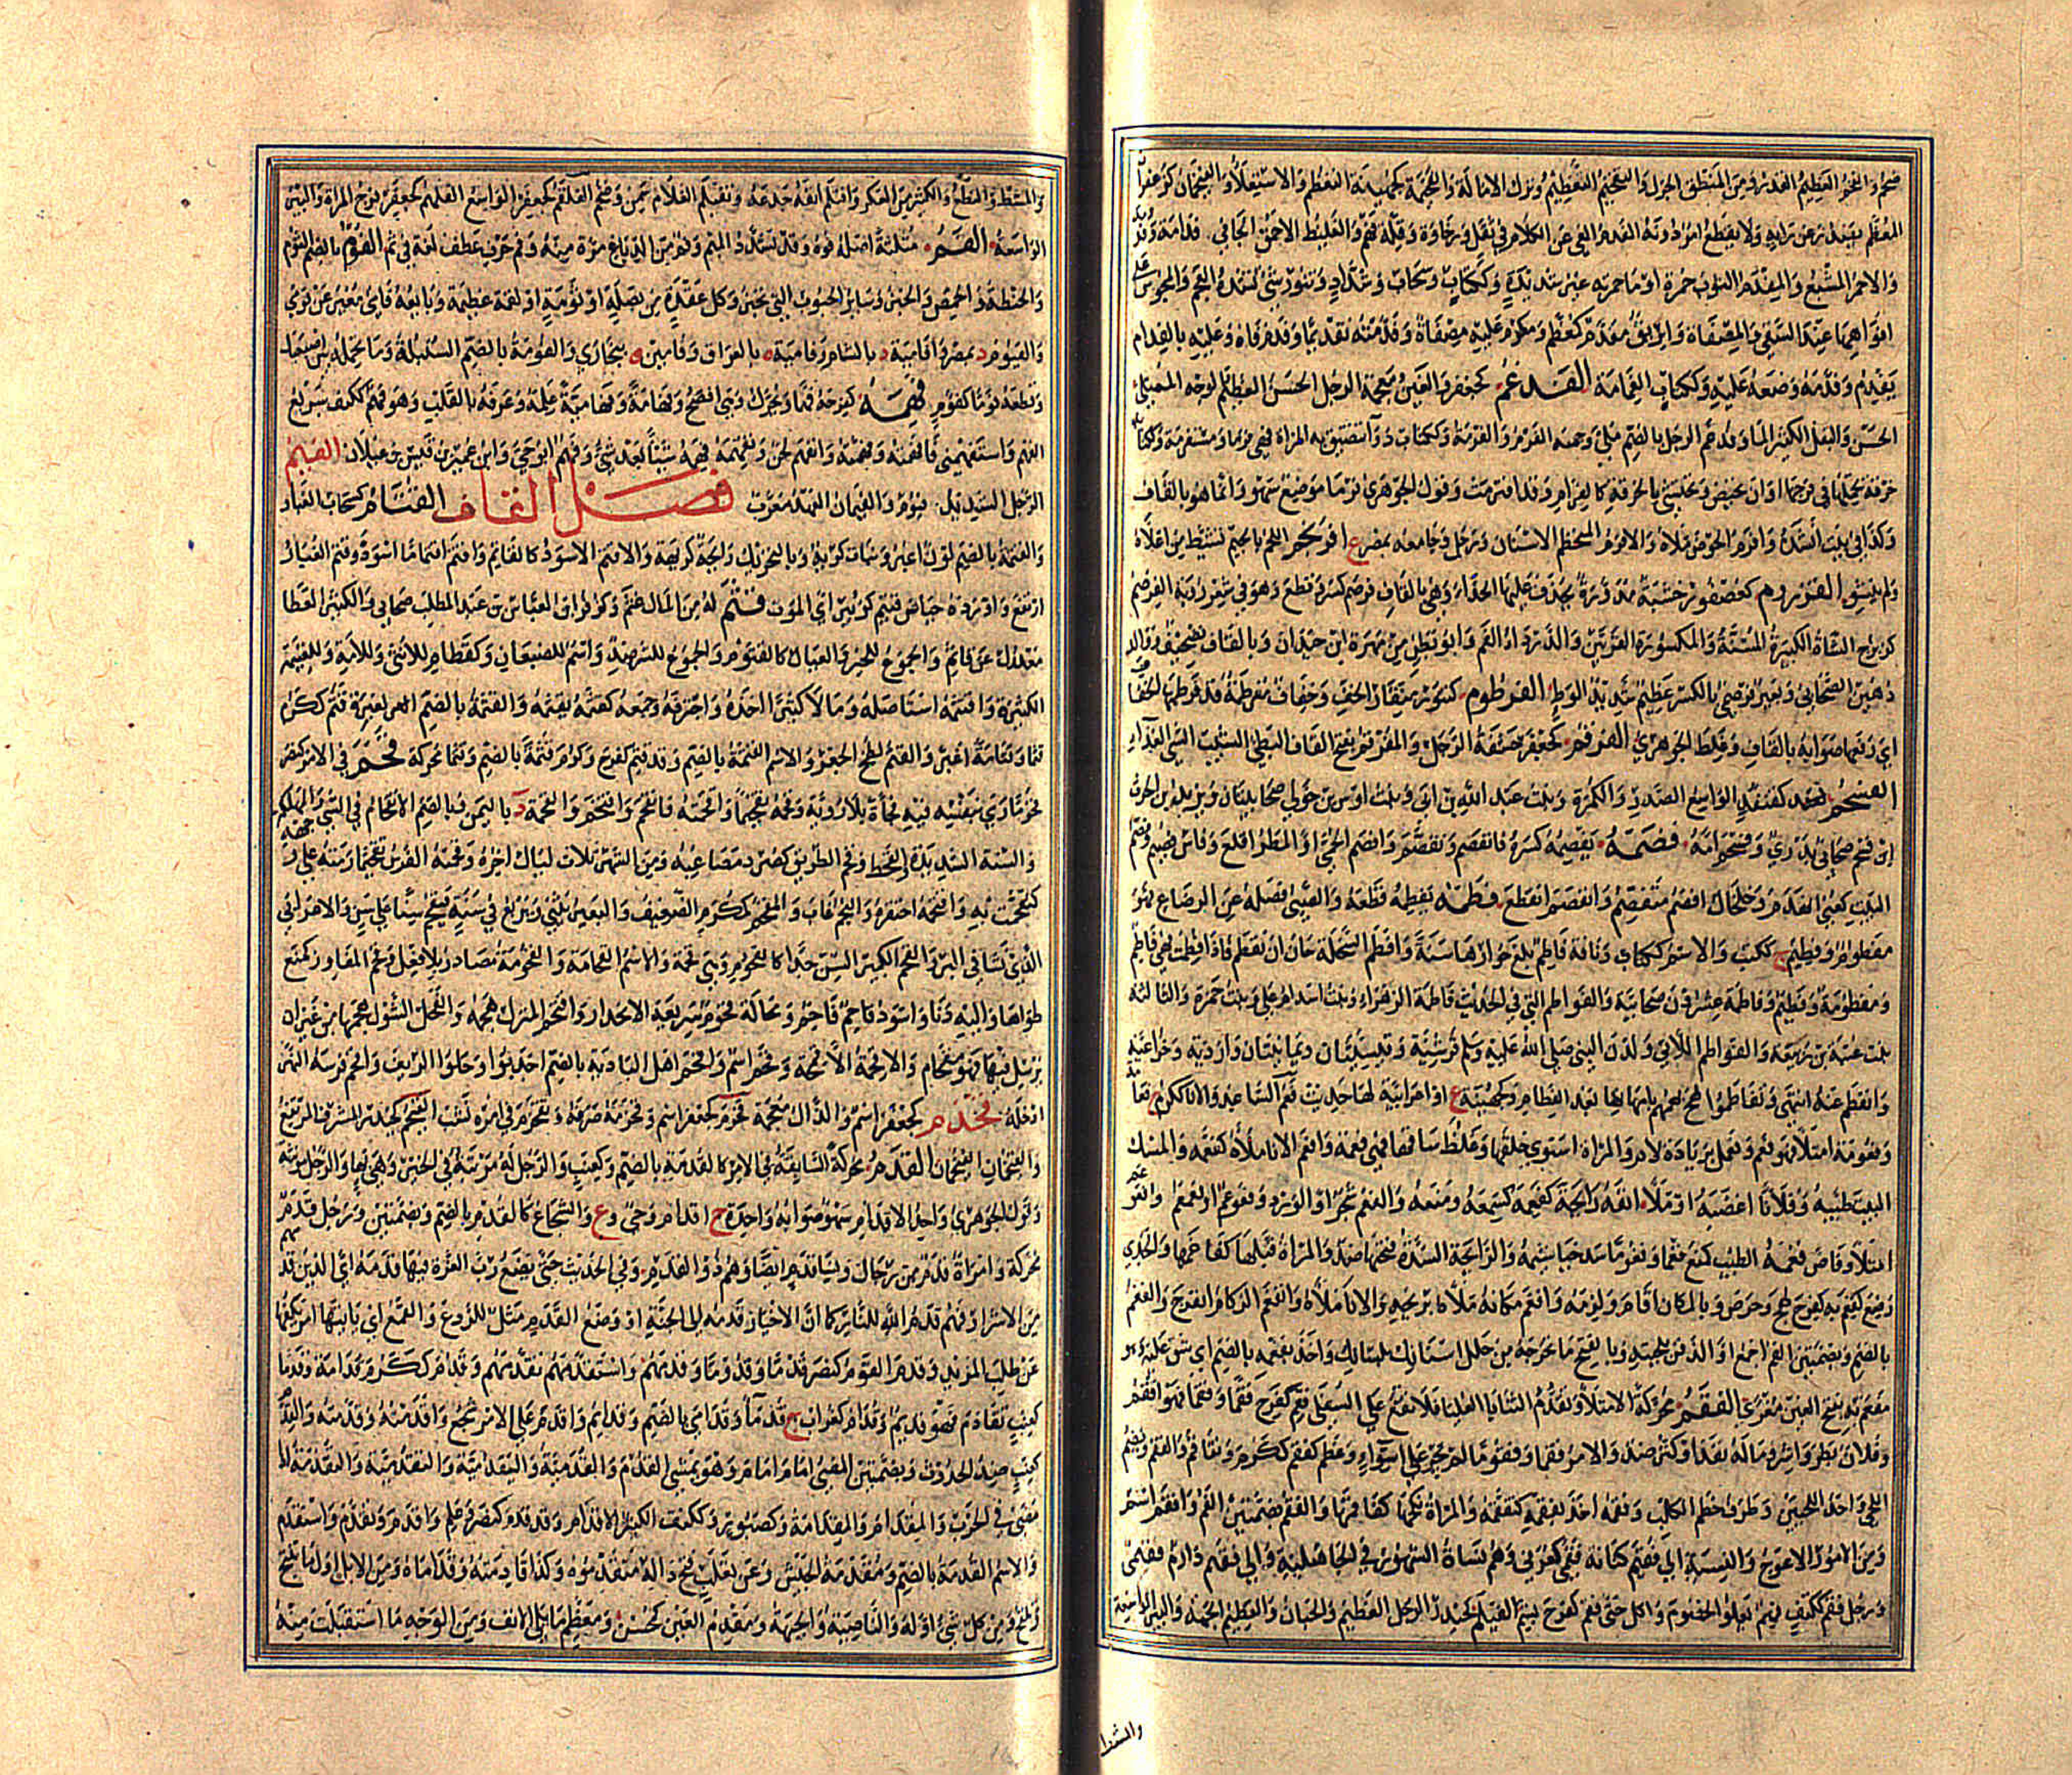 ضخم والفخم العظيم القدر ومن المنطق الجزل والتفخيم التعظيم وترك الامالة والفخمية كجهينة التعظم والاستعلاء والفيخمان كزعفران
المعظم يصدر عن رايه ولا يقطع امر دونه الفدم العي عن الكلام في ثقل ورخاوة وقلة فهم والغليظ الاحمق الجافي فدامة وفدومة
والاحمر المشبع والمفدم الثوب حمرة او ما حمرته غير شديدة وككتاب وسحاب وشداد وتنور شئ تشده العجم والمجوس على
افواهها عند السقي والمصفاة وابريق مفدم كمعظم ومكرم عليه مصفاة وفدمته تفديما وفدم فاه وعليه بالفدام
يفدم وفدمه وضعه عليه وككتاب الغمامة الفدغم كجعفر والغين معجمة الرجل الحسن العظيم الوجه الممتلئ
الحسن والبقل الكثير الماء وفدغم الرجل بالضم ملئ وجهه الفرم والفرمة وككتاب دواء تتضيق به المراة فهي فرما ومستفرمة وككتاب
خرقة تحملها في فرجها او ان تحيض وتحتشي بالخرقة كالفرام وقد افترمت وقول الجوهري فرما موضع سهو وانما هو بالقاف
وكذا في بيت انشده وافرم الحوض ملاه والافرم المتحطم الاسنان ورجل وجامعه بمصر ع افرنجم اللحم بالجيم تشيط من اعلاه
ولم ينشو الفرزوم كعصفور خشبة مدورة يحذو عليها الحذاء وهي بالقاف فرصم كسر وقطع وهو في شعر رؤبة الفرضم
كزبرج الشاة الكبيرة المسنة والمكسورة القرنين والدرداء الفم وابو بطن من مهرة ابن حيدان وبالقاف تصحيف وقالد
ذهبن الصحابي وبعير فرضمي بالكسر عظيم شديد الوطء الفرطوم كزنبور منقار الخف وخفاف مفرطمة قد فرطمها الخفاف
اي رقعها صوابه بالقاف وغلط الجوهري الفرقم كجعفر حشفة الرجل والمفرقم بفتح القاف البطئ الشيب السئ الغذاء
الفسحم كقنفذ الواسع الصدر والكمرة وبنت عبد الله بن ابي وبنت اوس بن خولي صحابيتان ويزيد بن الحرث
ابن فسحم صحابي بدري وفسحم امه فصمه يفصمه كسره فانفصم وتفصم وافصم الحمى او المطر اقلع وفاس فصيم وفصم
البيت كعني انهدم وخلخال افصم متفصم وانفصم انقطع فطمه يفطمه قطعه والصبي فصله عن الرضاع فهو
مفطوم وفطيم ج ككتب والاسم ككتاب وناقة فاطم بلغ حوارها سنة وافطم السخلة حان ان تفطم فاذا فطمت فهي فاطم
ومفطومة وفطيم وفاطمة عشرون صحابية والفواطم التي في الحديث فاطمة الزهراء وبنت اسد ام علي وبنت حمزة والثالثة
بنت عتبة بن ربيعة والفواطم اللاتي ولدن النبي صلى الله عليه وسلم قرشية وقيسيتان ويمانيتان وازدية وخزاعية
وانفطم عنه انتهى وتفاطموا لهج بهمهم بامهاتها بعد الفطام وكجهينة ع او اعرابية لها حديث فعم الساعد والاناء ككرم فعامة
وفعومة امتلأ فهو فعم وفعمل بزيادة لام والمراة استوى خلقها وغلظ ساقها فهي فعمة وافعم الاناء ملاه كفعمه والمسك
البيت طيبه وفلانا اغضبه او ملأ انفه رائحة كفغمه كسمعه ومنعه والفعم شجر او الورد وفعوعم امفعم وافعوعم
امتلأ وفاض فغمه الطيب كمنع فغما وفغوما سد خياشيمه والرائحة السدة فتحتها ضد والمراة قبلها كفاغمها والجدي
رضع كفغم به كفرح لهج وحرص وبالمكان اقام ولزمه وافغم مكانه ملأه بريحه والاناء كملاه وافغم الزكام انفرج والفغم
بالضم وبضمتين الفم اجمع او الذقن بلحيته وبالفتح ما تخرجه من خلل اسنانك بلسانك واخذ بفغمه بالضم اي شق عليه وهو
مفغم به بفتح الغين مغرى الفقم محركة الامتلاء وتقدم الثنايا العليا فلا تقع على السفلى فقم كفرح فقما وفقما فهو افقم
وفلان بطر واشر وماله نفد او كثر ضد والامر فقما وفقوما لم يجر على استواء وعظم كفقم ككرم وتفاقم والفقم ويضم
اللحي او احد اللحيين وطرف خطم الكلب وفقمه اخذ بفقمه كتفقمه والمراة نكحها كفاقمها والفقم بضمتين الفم وافقم اسم
ومن الامور الاعوج والنسبة الى فقيم كنانة فقمي كعرني وهم نساة الشهور في الجاهلية والى فقيم دارم فقيمي
ورجل فقم ككتف فهم يعلو الخصوم واكل حتى فقم كفرح بشم الفيلم كحيدر الرجل العظيم والجبان والعظيم الجمة والبئر الواسعة
والمشط
والمشط والنطع والكثير من العكر وافتلم انفه جدعه وتفيلم الغلام سمن وضخم الفلقم كجعفر الواسع الفلهم كجعفر فرج المراة والبئر
الواسعة الفم مثلثة اصله فوه وقد تشدد الميم وفم من الدباغ مرة منه وفم حرف عطف لغة في ثم الفوم بالضم الثوم
والحنطة والحمص والخبز وسائر الحبوب التي تخبز وكل عقدة من بصلة او ثومة او لقمة عظيمة وبائعه فامي مغير عن فومي
والفيوم د بمصر وافامية د بالشام وفامية ه بالعراق وفامين ه ببخارى والفومة بالضم السنبلة وما تحمله بين اصبعيك
وقطعه فوما كفوم فهمه كفرحه فهما ويحرك وهي افصح وفهامة وفهامية علمه وعرفه بالقلب وهو فهم ككتف سريع
الفهم واستفهمني فافهمته وفهمته وانفهم لحن وتفهمه فهمه شيئا بعد شئ وفهم ابو حي وابن عمرو بن قيس بن عيلان الفيم
الرجل الشديد ج فيوم والفيمان العهد معرب فصل القاف القتام كسحاب الغبار
والقتمة بالضم لون اغبر ونبات كريه وبالتحريك رائحة كريهة والاقتم الاسود كالقاتم واقتم اقتماما اسود وقتم الغبار
ارتفع واورده حياض قتيم كزبير اي الموت قثم له من المال غثم وكزفر ابن العباس بن عبد المطلب صحابي والكثير العطاء
معدول عن قاثم والجموع للخير والعيال كالقثوم والجموع للشر ضد واسم للضبعان وكقطام للانثى وللامة وللغنيمة
الكثيرة واقتثمه استاصله ومالا كثيرا اخذه واجترفه وجمعه كقثمه يقثمه والقثمة بالضم الغبرة قثم ككرم
قثما وقثامة اغبر والقثم لطخ الجعر والاسم القثمة بالضم وقد قثم كفرح وكرم قثمة بالضم وقثما محركة قحم في الامر كنصر
قحوما رمى بنفسه فيه فجأة بلا روية وقحمه تقحيما واقحمته فانقحم واقتحم والقحمة د باليمن وبالضم الاقتحام في الشئ والمهلكة
والسنة الشديدة والقحط وقحم الطريق كصرد مصاعبه ومن الشهر ثلاث ليال اخره وقحمته الفرس تقحيما رمته على وجهه
كتقحمت به واقتحمه احتقره والنجم غاب والمقحم كمكرم الضعيف والبعير يثني ويربع في سنة فيقحم سنا على سن والاعرابي
الذي نشأ في البدو والقحم الكبير السن جدا كالقحوم وهي قحمة والاسم القحامة والقحومة مصادر بلا فعل وقحم المفاوز كمنع
طواها واليه دنا واسود قاحم فاحم ومحالة قحوم سريعة الانحدار واقحم المنزل هجمه والفحل الشول هجمها من غير ان
يرسل فيها فهو مقحام والاقحمة الاقحمة وقحم اسم واقحم اهل البادية بالضم اجدبوا وحلوا الريف واقحم فرسه النهر
ادخله قحدم كجعفر اسم والذال معجمة قحزم كجعفر اسم وقحزمه صرفه وتقحزم في امره نشب القيخم كحيدر المشرف المرتفع
والقيخمان الفيخمان القدم محركة السابقة في الامر كالقدمة بالضم وكعنب والرجل له مرتبة في الخير وهي بهاء والرجل مؤنثة
وقول الجوهري واحد الاقدام سهو صوابه واحدة ج اقدام وحي وع والشجاع كالقدم بالضم وبضمتين ورجل قدم
محركة وامراة قدم من رجال ونساء قدم ايضا وهم ذوو القدم وفي الحديث حتى يضع رب العزة فيها قدمه اي الذين قدمهم
من الاشرار فهم قدم الله للنار كما ان الاخيار قدمه الى الجنة او وضع القدم مثل للردع والقمع اي ياتيها امر يكفها
عن طلب المزيد وقدم القوم كنصر قدما وقدوما وقدمهم واستقدمهم تقدمهم وقدم ككرم قدامة وقدما
كعنب تقادم فهو قديم وقدام كغراب ج قدماء وقدامى بالضم وقدائم واقدم على الامر شجع واقدمته وقدمته والقدم
كعنب ضد الحدوث وبضمتين المضي امام امام وهو يمشي القدم والقدمية واليقدمية والتقدمية والتقدمة اذا
مضى في الحرب والمقدام والمقدامة وكصبور وككتف الكثير الاقدام وقد قدم كنصر وعلم واقدم وتقدم واستقدم
والاسم القدمة بالضم ومقدمة الجيش وعن ثعلب فتح داله متقدموه وكذا قادمته وقداماه ومن الابل اول ما تنتج
وتلقح ومن كل شئ اوله والناصية والجبهة ومقدم العين كمحسن ومعظم ما يلي الانف ومن الوجه ما استقبلت منه